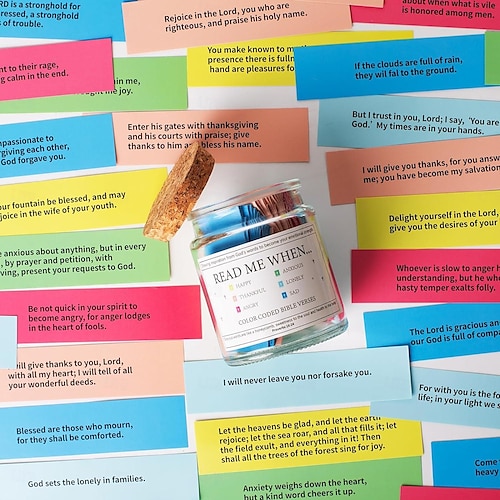 RD is a stronghold for
pressed, a stronghold
s of trouble.
Rejoice in the Lord, you who are
righteous, and praise his holy name.
about when what is vile
is honored among men.
nt to their rage,
ng calm in the end.
in me,
ught me joy.
You make known to m
presence there is fulln
hand are pleasures fo
If the clouds are full of rain,
they wil fal to the ground.
mpassionate to
rgiving each other,
God forgave you.
Enter his gates with thanksgiving
and his courts with praise; give
thanks to him and bless his name.
But I trust in you, Lord; I say, 'You are
God.' My times are in your hands.
I will give you thanks, for you answ
me; you have become my salvation
ur fountain be blessed, and may
ejoice in the wife of your youth.
Delight yourself in the Lord,
give you the desires of your
e anxious about anything, but in every
, by prayer and petition, with
ving, present your requests to God.
Whoever is slow to anger h
understanding, but he who
hasty temper exalts folly.
Be not quick in your spirit to
become angry, for anger lodges
in the heart of fools.
from God's words to become your emotional
READ ME WHEN...
HAPPY
ANXIOUS
THANKFUL
LONELY
ANGRY
SAD
COLOR CODED BIBLE VERSES
Proverbs 16:24
The Lord is gracious an
our God is full of compa
ill give thanks to you, Lord,
with all my heart; I will tell of all
your wonderful deeds.
I will never leave you nor forsake you.
For with you is the fo
life; in your light we s
Blessed are those who mourn,
for they shall be comforted.
Let the heavens be glad, and let the earth
rejoice; let the sea roar, and all that fills it; let
the field exult, and everything in it! Then
shall all the trees of the forest sing for joy.
Come
heavy
God sets the lonely in families.
Anxiety weighs down the heart,
but a kind word cheers it up.